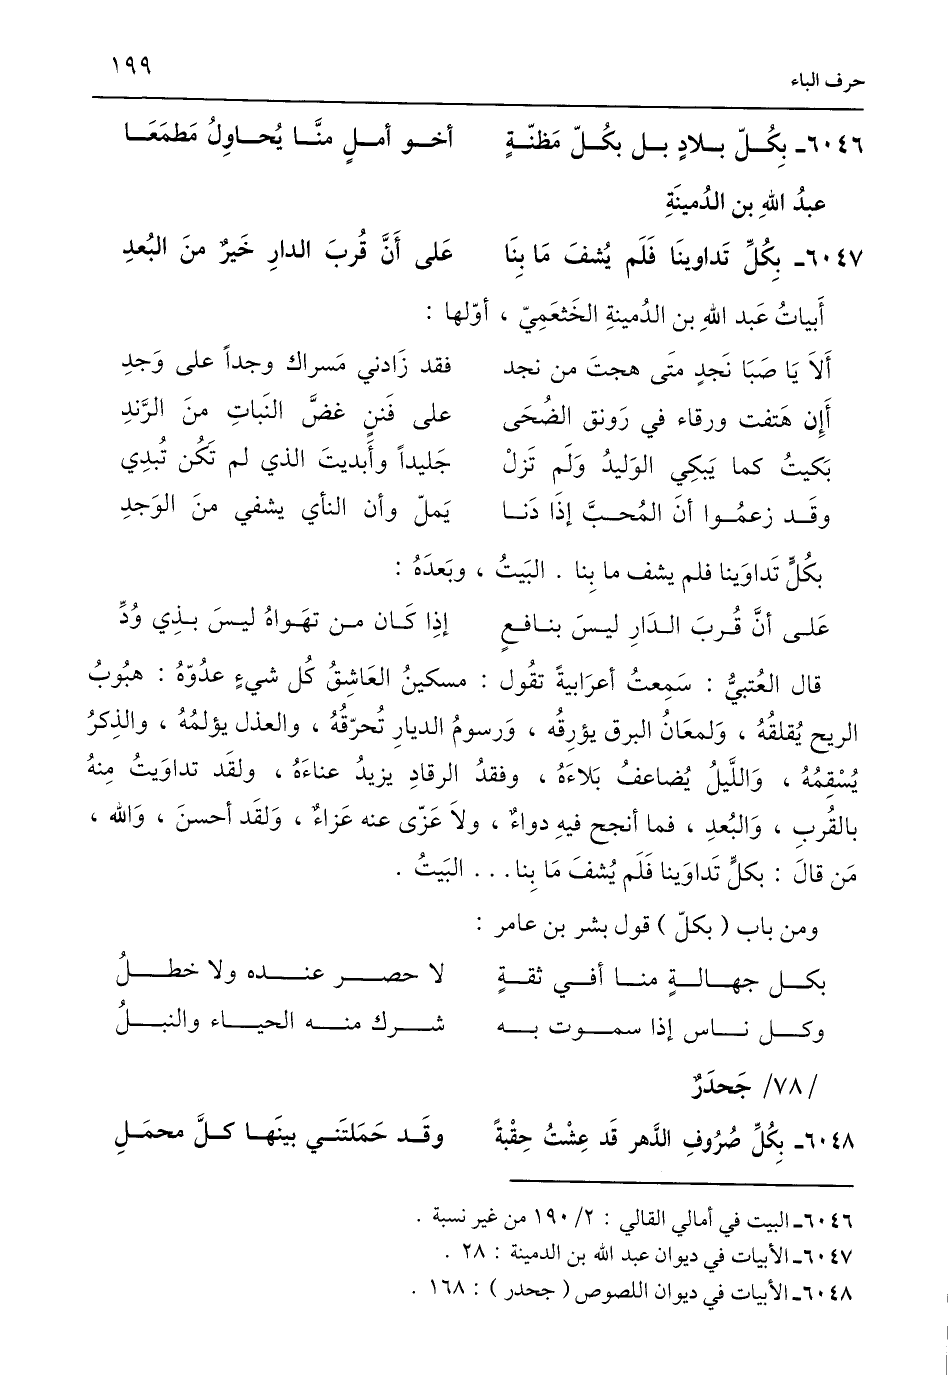 حرف الباء ١٩٩
٦٠٤٦ـ بِكُلّ بــلادٍ بــل بِكُــلّ مَظنّــةٍ أخــو أمــلٍ منَّــا يُحــاوِلُ مَطمَعَــا
عبدُ اللهِ بن الدُمينَةِ
٦٠٤٧ـ بِكُلٍّ تَداوينَا فَلَم يُشفَ مَا بِنَا عَلى أَنَّ قُربَ الدارِ خَيرٌ منَ البُعدِ
أَبياتُ عَبد اللهِ بن الدُمينةِ الخَثعَمِيّ ، أوّلها :
أَلاَ يَا صَبَا نَجدٍ متَى هجتَ من نجد فقد زَادني مَسراك وجداً على وَجدِ
أَإِن هَتفت ورقاء في رَونق الضُحَى على فَننٍ غضَّ النَباتِ منَ الرَندِ
بَكيتُ كما يَبكِي الوَليدُ وَلَم تَزلْ جَليداً وأَبديتَ الذي لم تَكُن تُبدِي
وقَــد زعمُــوا أنَ المُحــبَّ إذَا دَنــا يَملّ وأن النأي يشفي منَ الوَجدِ
بكُلٍّ تَداوَينا فلم يشف ما بِنا . البَيتُ ، وبَعدَهُ :
عَلــى أنَّ قُــربَ الـدَارِ ليـسَ بنـافـعٍ إذِا كَــان مــن تهـواهُ ليـسَ بـذِي وُدِّ
قال العُتبيُّ : سَمِعتُ أعرَابيةً تقُول : مسكينُ العَاشقُ كُل شيءٍ عدُوّهُ : هبُوبُ
الريح يُقلقهُ ، وَلمعَانُ البرق يؤرقهُ ، وَرسومُ الديارِ تُحرّقهُ ، والعذل يؤلمُهُ ، والذِكرُ
يُسْقِمُهُ ، وَاللَّيلُ يُضاعفُ بَلاءَهُ ، وفقدُ الرقادِ يزيدُ عناءَهُ ، ولقَد تداوَيتُ مِنهُ
بالقُربِ ، وَالبُعدِ ، فما أنجح فيهِ دواءٌ ، ولاَ عَزّى عنه عَزاءٌ ، وَلقَد أحسنَ ، وَالله ،
مَن قالَ : بكلٍّ تَداوَينا فَلَم يُشفَ مَا بِنا . . . البَيتُ .
ومن باب ( بكلّ ) قول بشر بن عامر :
بكــل جهــالــةٍ منــا أفــي ثقــةٍ لا حصــر عنــده ولا خطــلُ
وكــل نــاس إذا سمــوت بــه شــرك منــه الحيــاء والنبــلُ
/ ٧٨/ جَحدَرٌ
٦٠٤٨ـ بِكُلِّ صُرُوفِ الدَّهر قَد عِشْتُ حِقْبةً وقَــد حَمَلتَنـي بينَهـا كـلَّ محمَـلِ
٦٠٤٦ـ البيت في أمالي القالي : ٢/ ١٩٠ من غير نسبة .
٦٠٤٧ـ الأبيات في ديوان عبد الله بن الدمينة : ٢٨ .
٦٠٤٨ـ الأبيات في ديوان اللصوص ( جحدر ) : ١٦٨ .